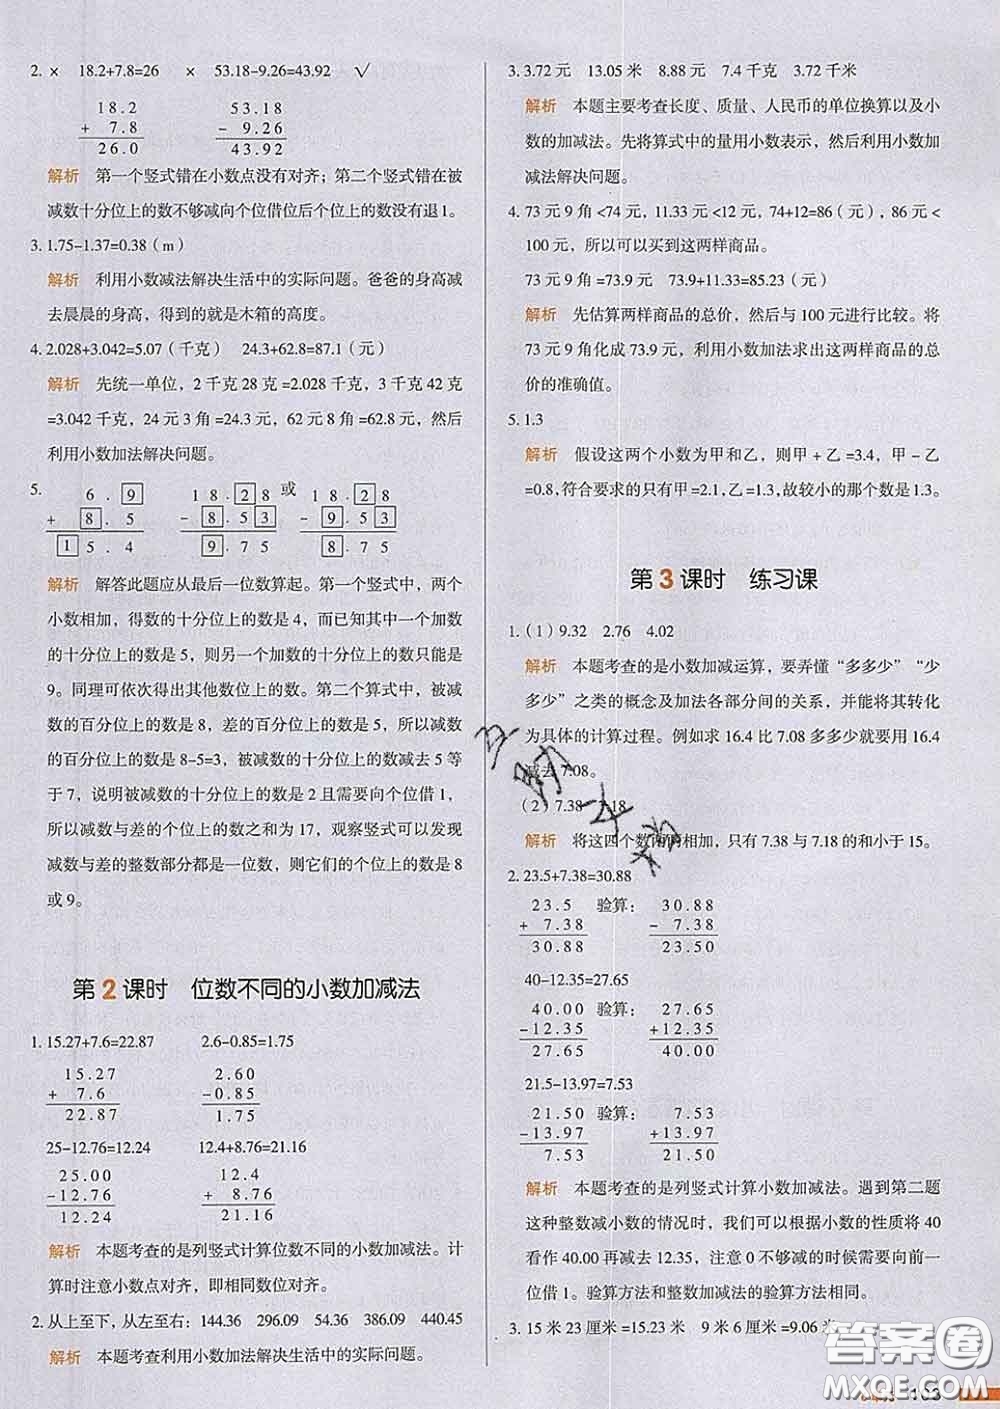 2. × 18.2+7.8=26 × 53.18-9.26=43.92 √
18.2 53.18
+ 7.8 - 9.26
26.0 43.92
解析 第一个竖式错在小数点没有对齐；第二个竖式错在被
减数十分位上的数不够减向个位借位后个位上的数没有退1。
3. 1.75-1.37=0.38（m）
解析 利用小数减法解决生活中的实际问题。爸爸的身高减
去晨晨的身高，得到的就是木箱的高度。
4. 2.028+3.042=5.07（千克） 24.3+62.8=87.1（元）
解析 先统一单位，2 千克 28 克 =2.028 千克，3 千克 42 克
=3.042 千克，24 元 3 角 =24.3 元，62 元 8 角 =62.8 元，然后
利用小数加法解决问题。
5. 6.9 18.28 或 18.28
+ 8.5 - 8.53 - 9.53
15.4 9.75 8.75
解析 解答此题应从最后一位数算起。第一个竖式中，两个
小数相加，得数的十分位上的数是 4，而已知其中一个加数的
十分位上的数是 5，则另一个加数的十分位上的数只能是
9。同理可依次得出其他数位上的数。第二个算式中，被减
数的百分位上的数是 8，差的百分位上的数是 5，所以减数
的百分位上的数是 8-5=3，被减数的十分位上的数减去 5 等
于 7，说明被减数的十分位上的数是 2 且需要向个位借 1，
所以减数与差的个位上的数之和为 17，观察竖式可以发现
减数与差的整数部分都是一位数，则它们的个位上的数是 8
或 9。
第 2 课时 位数不同的小数加减法
1. 15.27+7.6=22.87 2.6-0.85=1.75
15.27 2.60
+ 7.6 -0.85
22.87 1.75
25-12.76=12.24 12.4+8.76=21.16
25.00 12.4
-12.76 + 8.76
12.24 21.16
解析 本题考查的是列竖式计算位数不同的小数加减法。计
算时注意小数点对齐，即相同数位对齐。
2. 从上至下，从左至右：144.36 296.09 54.36 386.09 440.45
解析 本题考查利用小数加法解决生活中的实际问题。
3. 3.72 元 13.05 米 8.88 元 7.4 千克 3.72 千米
解析 本题主要考查长度、质量、人民币的单位换算以及小
数的加减法。先将算式中的量用小数表示，然后利用小数加
减法解决问题。
4. 73 元 9 角 <74 元，11.33 元 <12 元，74+12=86（元），86 元 <
100 元，所以可以买到这两样商品。
73 元 9 角 =73.9 元 73.9+11.33=85.23（元）
解析 先估算两样商品的总价，然后与 100 元进行比较。将
73 元 9 角化成 73.9 元，利用小数加法求出这两样商品的总
价的准确值。
5. 1.3
解析 假设这两个小数为甲和乙，则甲 + 乙 =3.4，甲 - 乙
=0.8，符合要求的只有甲 =2.1，乙 =1.3，故较小的那个数是 1.3。
第 3 课时 练习课
1.（1）9.32 2.76 4.02
解析 本题考查的是小数加减运算，要弄懂“多多少”“少
多少”之类的概念及加法各部分间的关系，并能将其转化
为具体的计算过程。例如求 16.4 比 7.08 多多少就要用 16.4
减去 7.08。
（2）7.38 7.18
解析 将这四个数两两相加，只有 7.38 与 7.18 的和小于 15。
2. 23.5+7.38=30.88
23.5 验算： 30.88
+ 7.38 - 7.38
30.88 23.50
40-12.35=27.65
40.00 验算： 27.65
-12.35 +12.35
27.65 40.00
21.5-13.97=7.53
21.50 验算： 7.53
-13.97 +13.97
7.53 21.50
解析 本题考查的是列竖式计算小数加减法。遇到第二题
这种整数减小数的情况时，我们可以根据小数的性质将 40
看作 40.00 再减去 12.35，注意 0 不够减的时候需要向前一
位借 1。验算方法和整数加减法的验算方法相同。
3. 15 米 23 厘米 =15.23 米 9 米 6 厘米 =9.06 米
答案圈
MXQE.COM
103